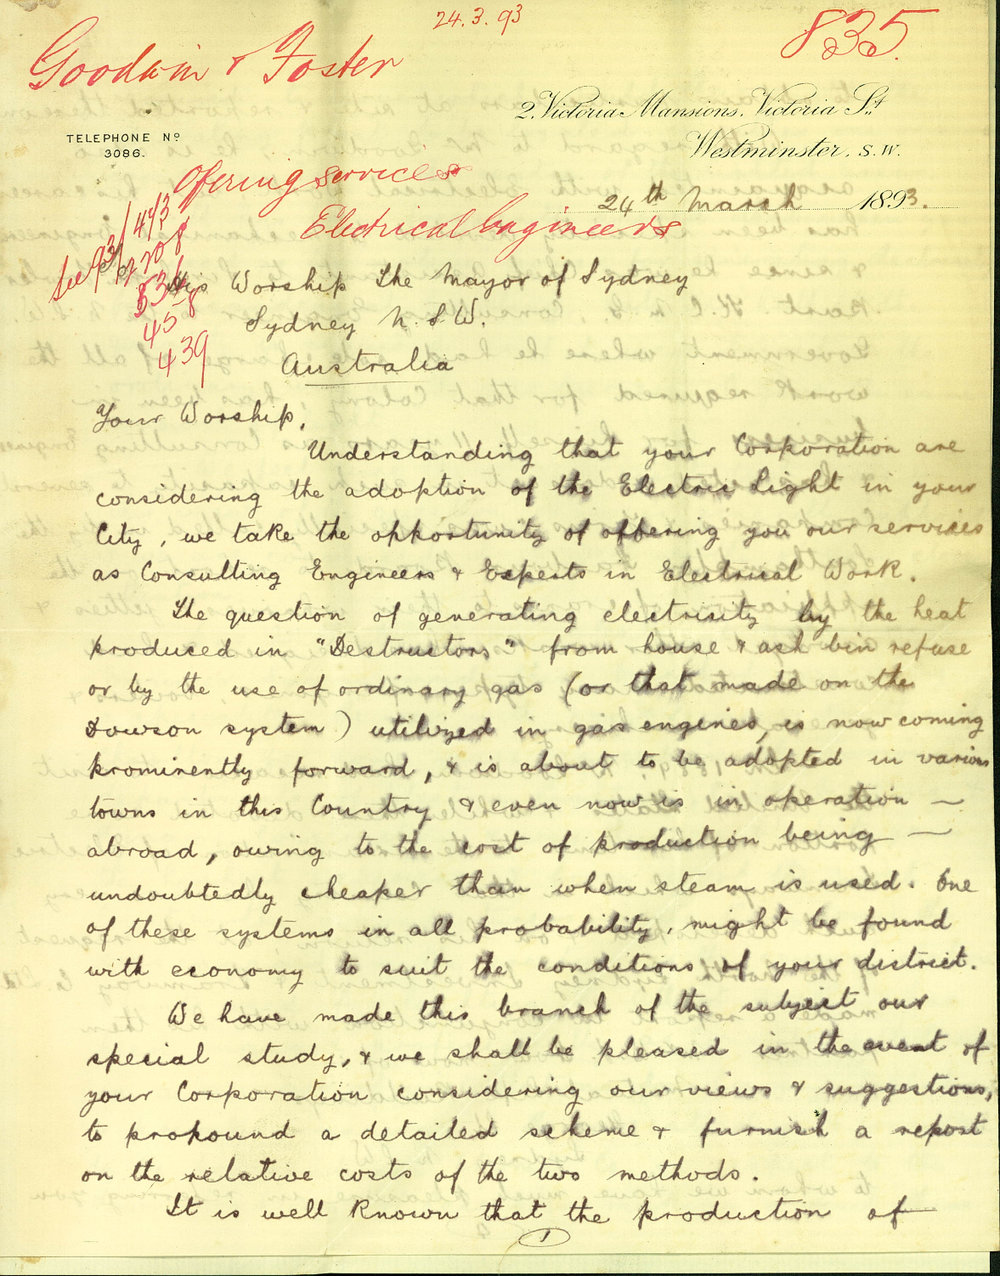 24.3.93
835.
Goodwin & Foster
2, Victoria Mansions, Victoria St.
TELEPHONE No
3086.
Westminster, S.W.
Offering services
24th March 1893.
Electrical Engineers
See 93/473
2208
534
458
439
His Worship The Mayor of Sydney
Sydney N.S.W.
Australia
Your Worship,
Understanding that your Corporation are
considering the adoption of the Electric Light in your
City, we take the opportunity of offering you our services
as Consulting Engineers & Experts in Electrical Work.
The question of generating electricity by the heat
produced in "Destructors" from house & ash bin refuse
or by the use of ordinary gas (or that made on the
Dowson system) utilized in gas engines, is now coming
prominently forward, & is about to be adopted in various
towns in this Country & even now is in operation —
abroad, owing to the cost of production being —
undoubtedly cheaper than when steam is used. One
of these systems in all probability, might be found
with economy to suit the conditions of your district.
We have made this branch of the subject our
special study, & we shall be pleased in the event of
your Corporation considering our views & suggestions,
to propound a detailed scheme & furnish a report
on the relative costs of the two methods.
It is well known that the production of
1